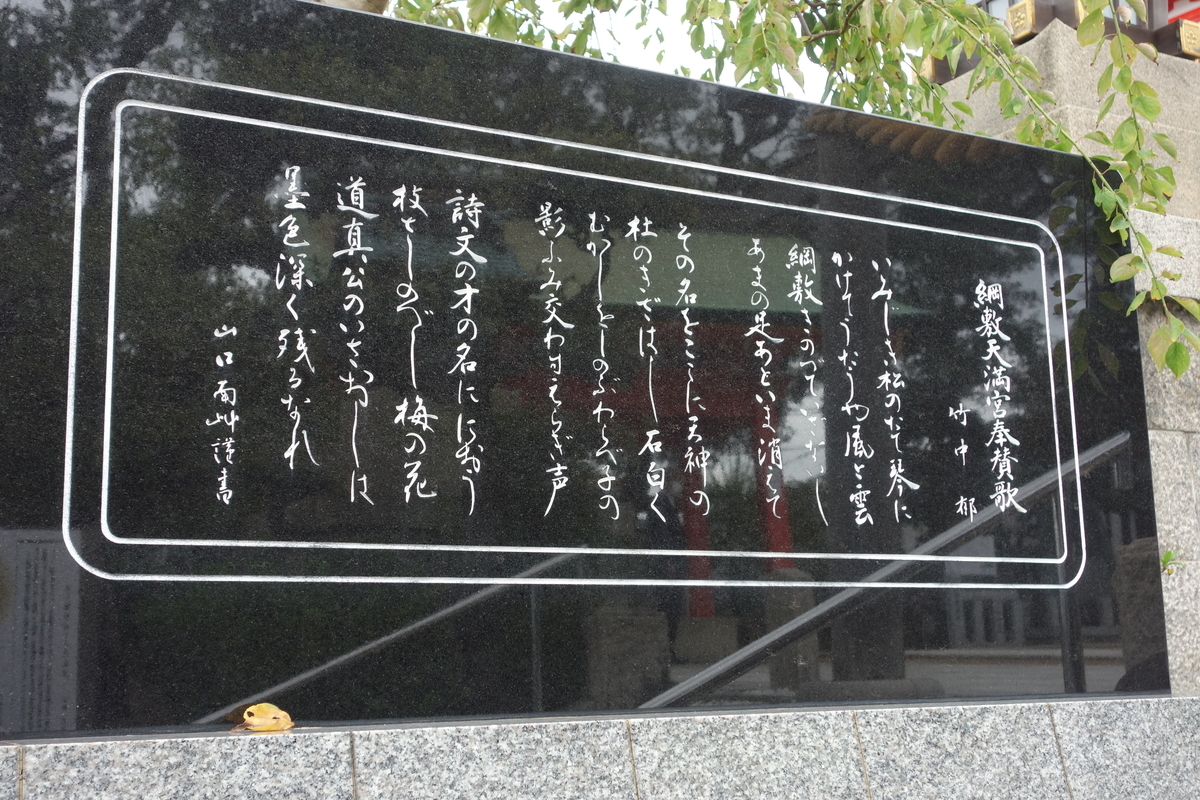 綱敷天満宮奉賛歌
竹中 郁
いみじき松のたて琴に
かけてうたうや風と雲
綱敷きのべていざないし
あまの足あといま消えて
その名をここに天神の
杜のきざはし石白く
むかしをしのぶわらべ子の
影ふみ交わすえらぎ声
詩文の才の名ににおう
枝さしのべし梅の花
道真公のいさおしは
墨色深く残るなれ
山口南艸謹書